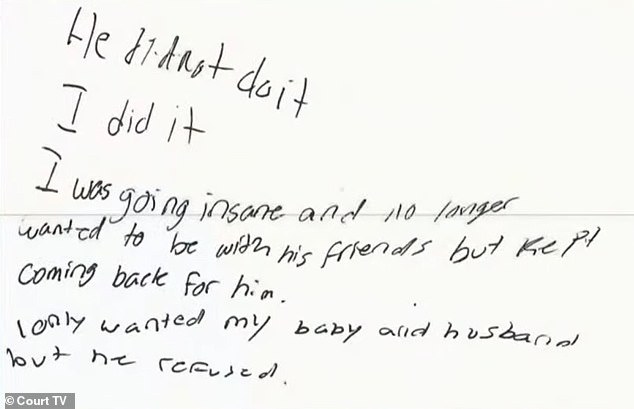 He did not do it
I did it
I was going insane and no longer
wanted to be with his friends but kept
coming back for him.
I only wanted my baby and husband
but he refused.
© Court TV